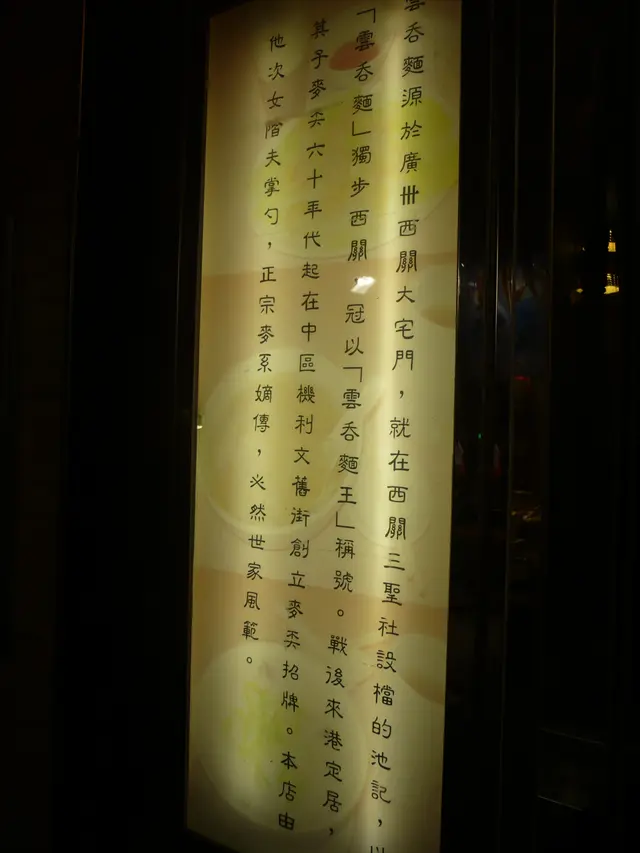 雲吞麵源於廣卅西關大宅門，就在西關三聖社設檔的池記，以
「雲吞麵」獨步西關，冠以「雲吞麵王」稱號。戰後來港定居，
其子麥奀六十年代起在中區機利文舊街創立麥奀招牌。本店由
他次女階夫掌勺，正宗麥系嫡傳，必然世家風範。